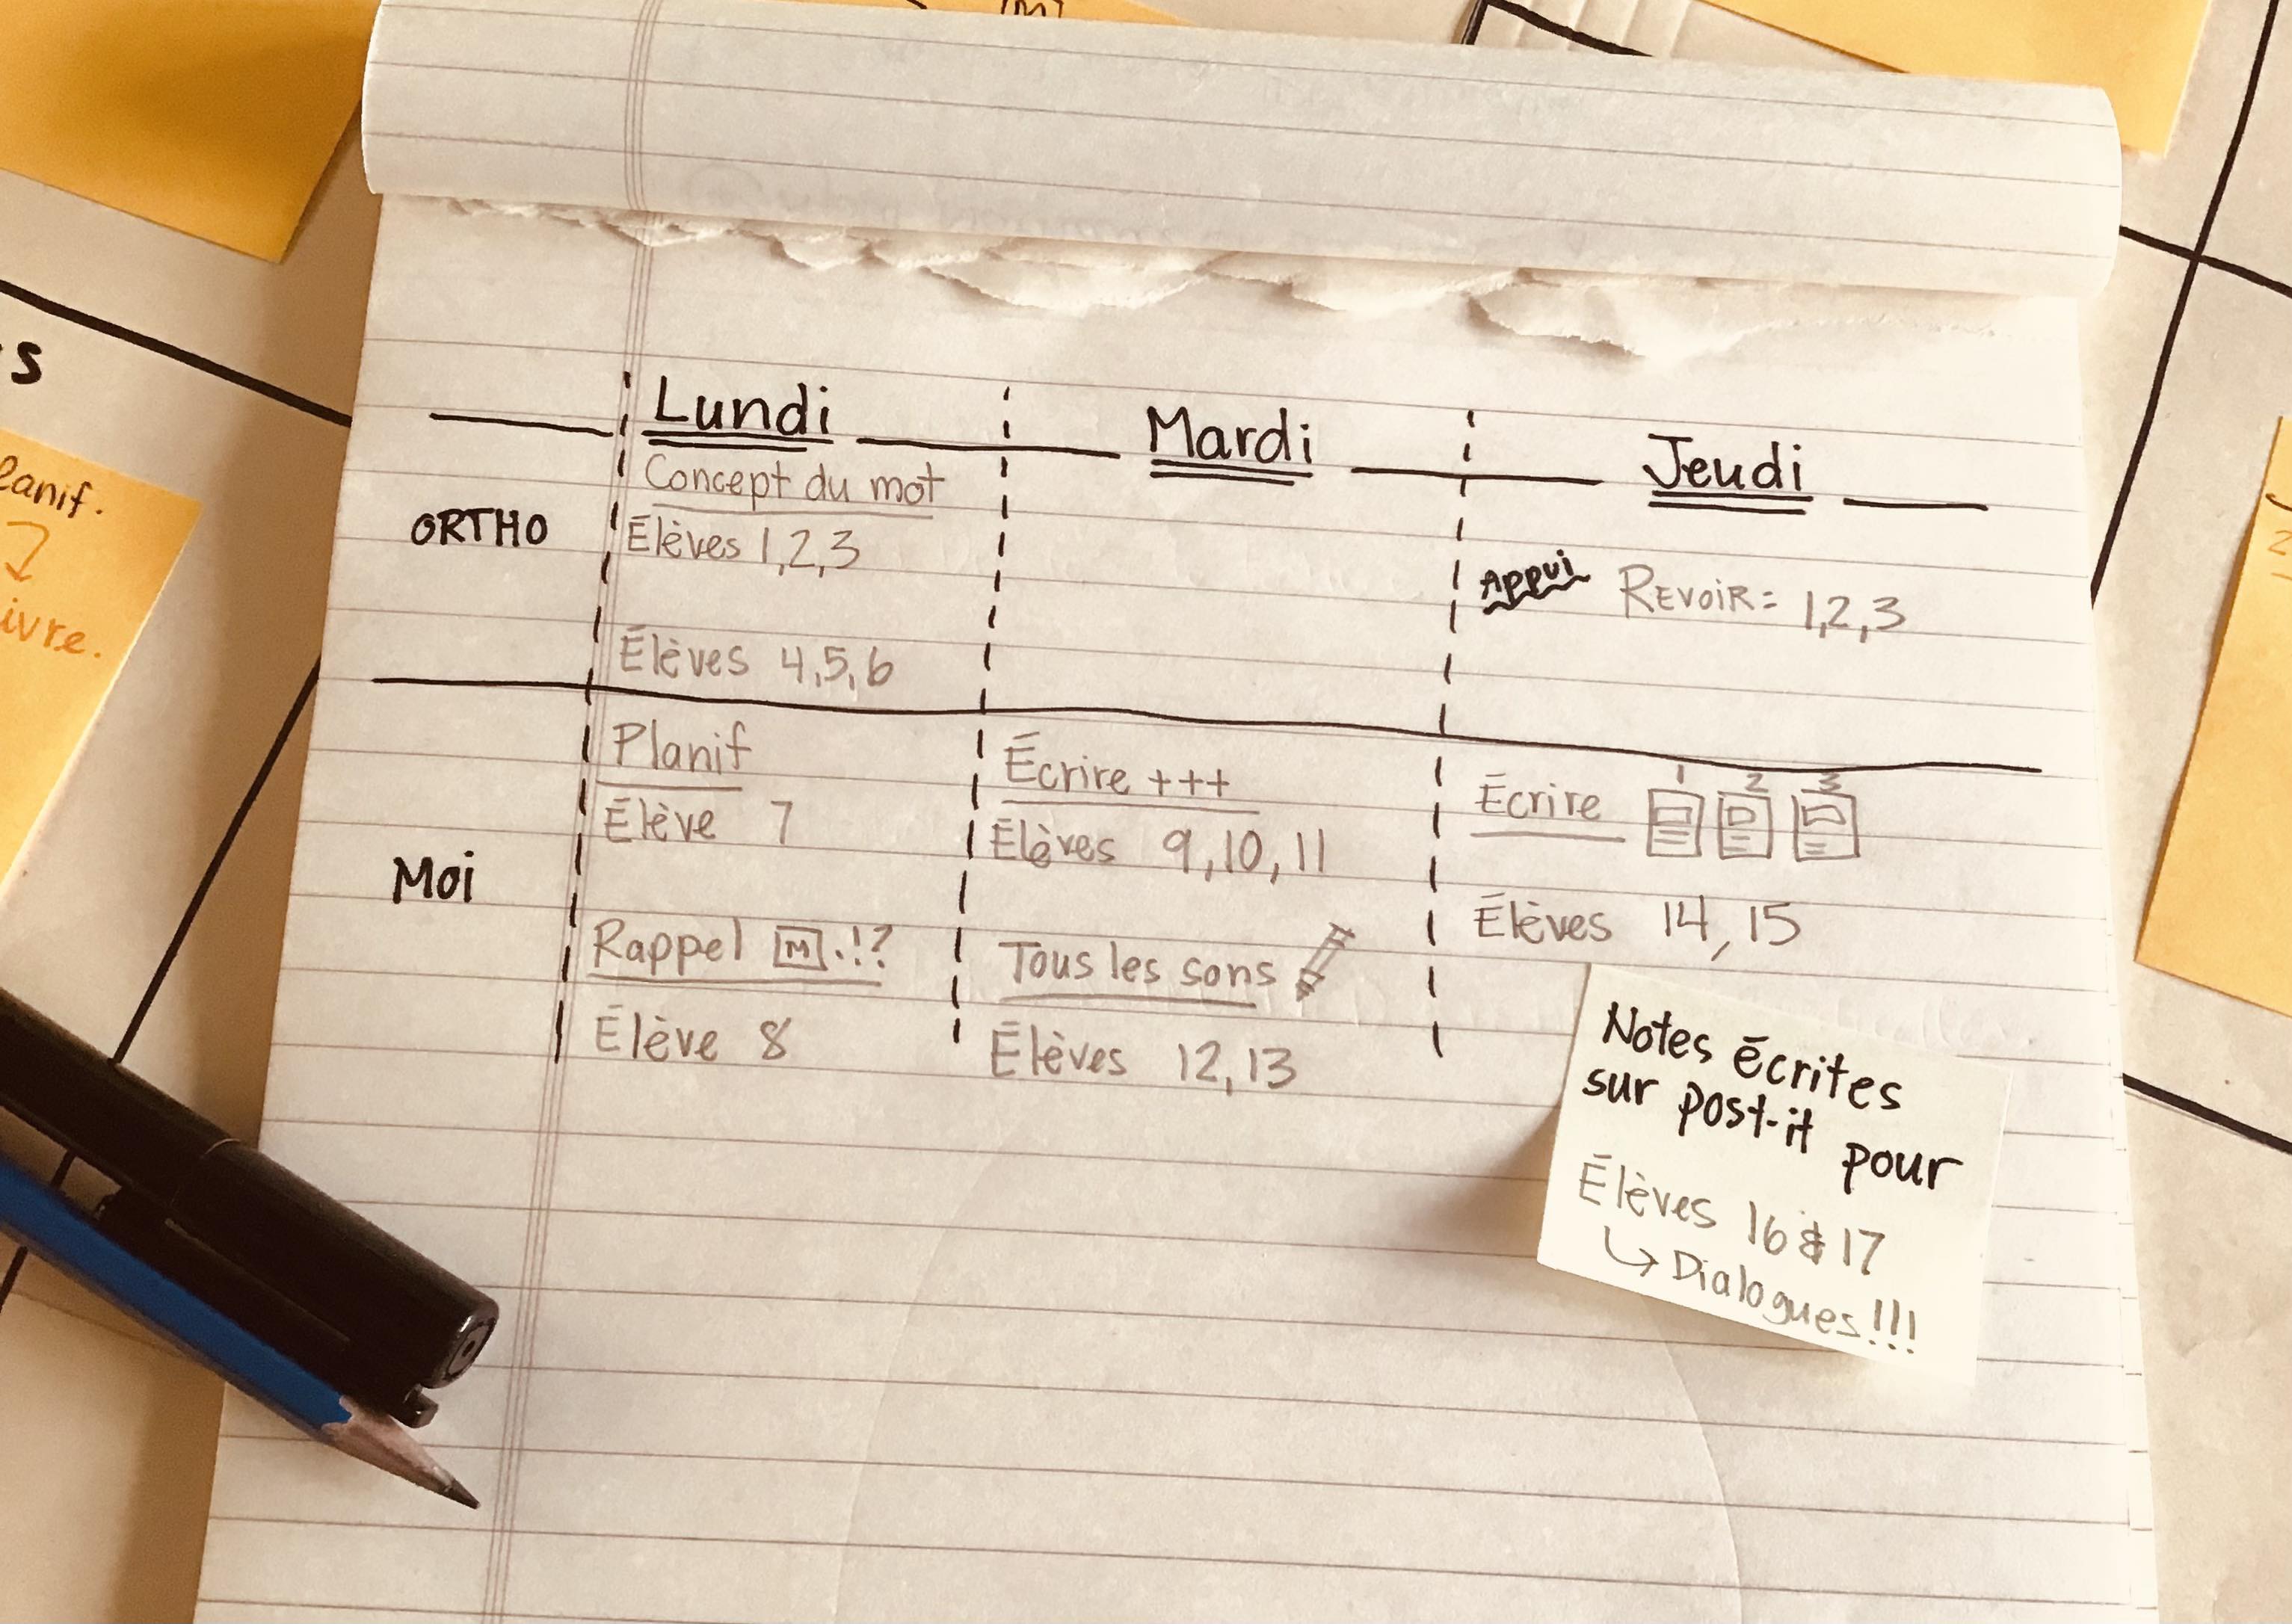 [M]
s
Lundi
Mardi
Jeudi
ORTHO
Concept du mot
Élèves 1,2,3
Élèves 4,5,6
APPUI REVOIR = 1,2,3
Moi
Planif
Élève 7
Rappel M.!?
Élève 8
Écrire +++
Élèves 9,10,11
Tous les sons
Élèves 12,13
Écrire 1 2 3
Élèves 14,15
Notes écrites
sur post-it pour
Élèves 16 & 17
↳ Dialogues!!!
lanif.
ivre.